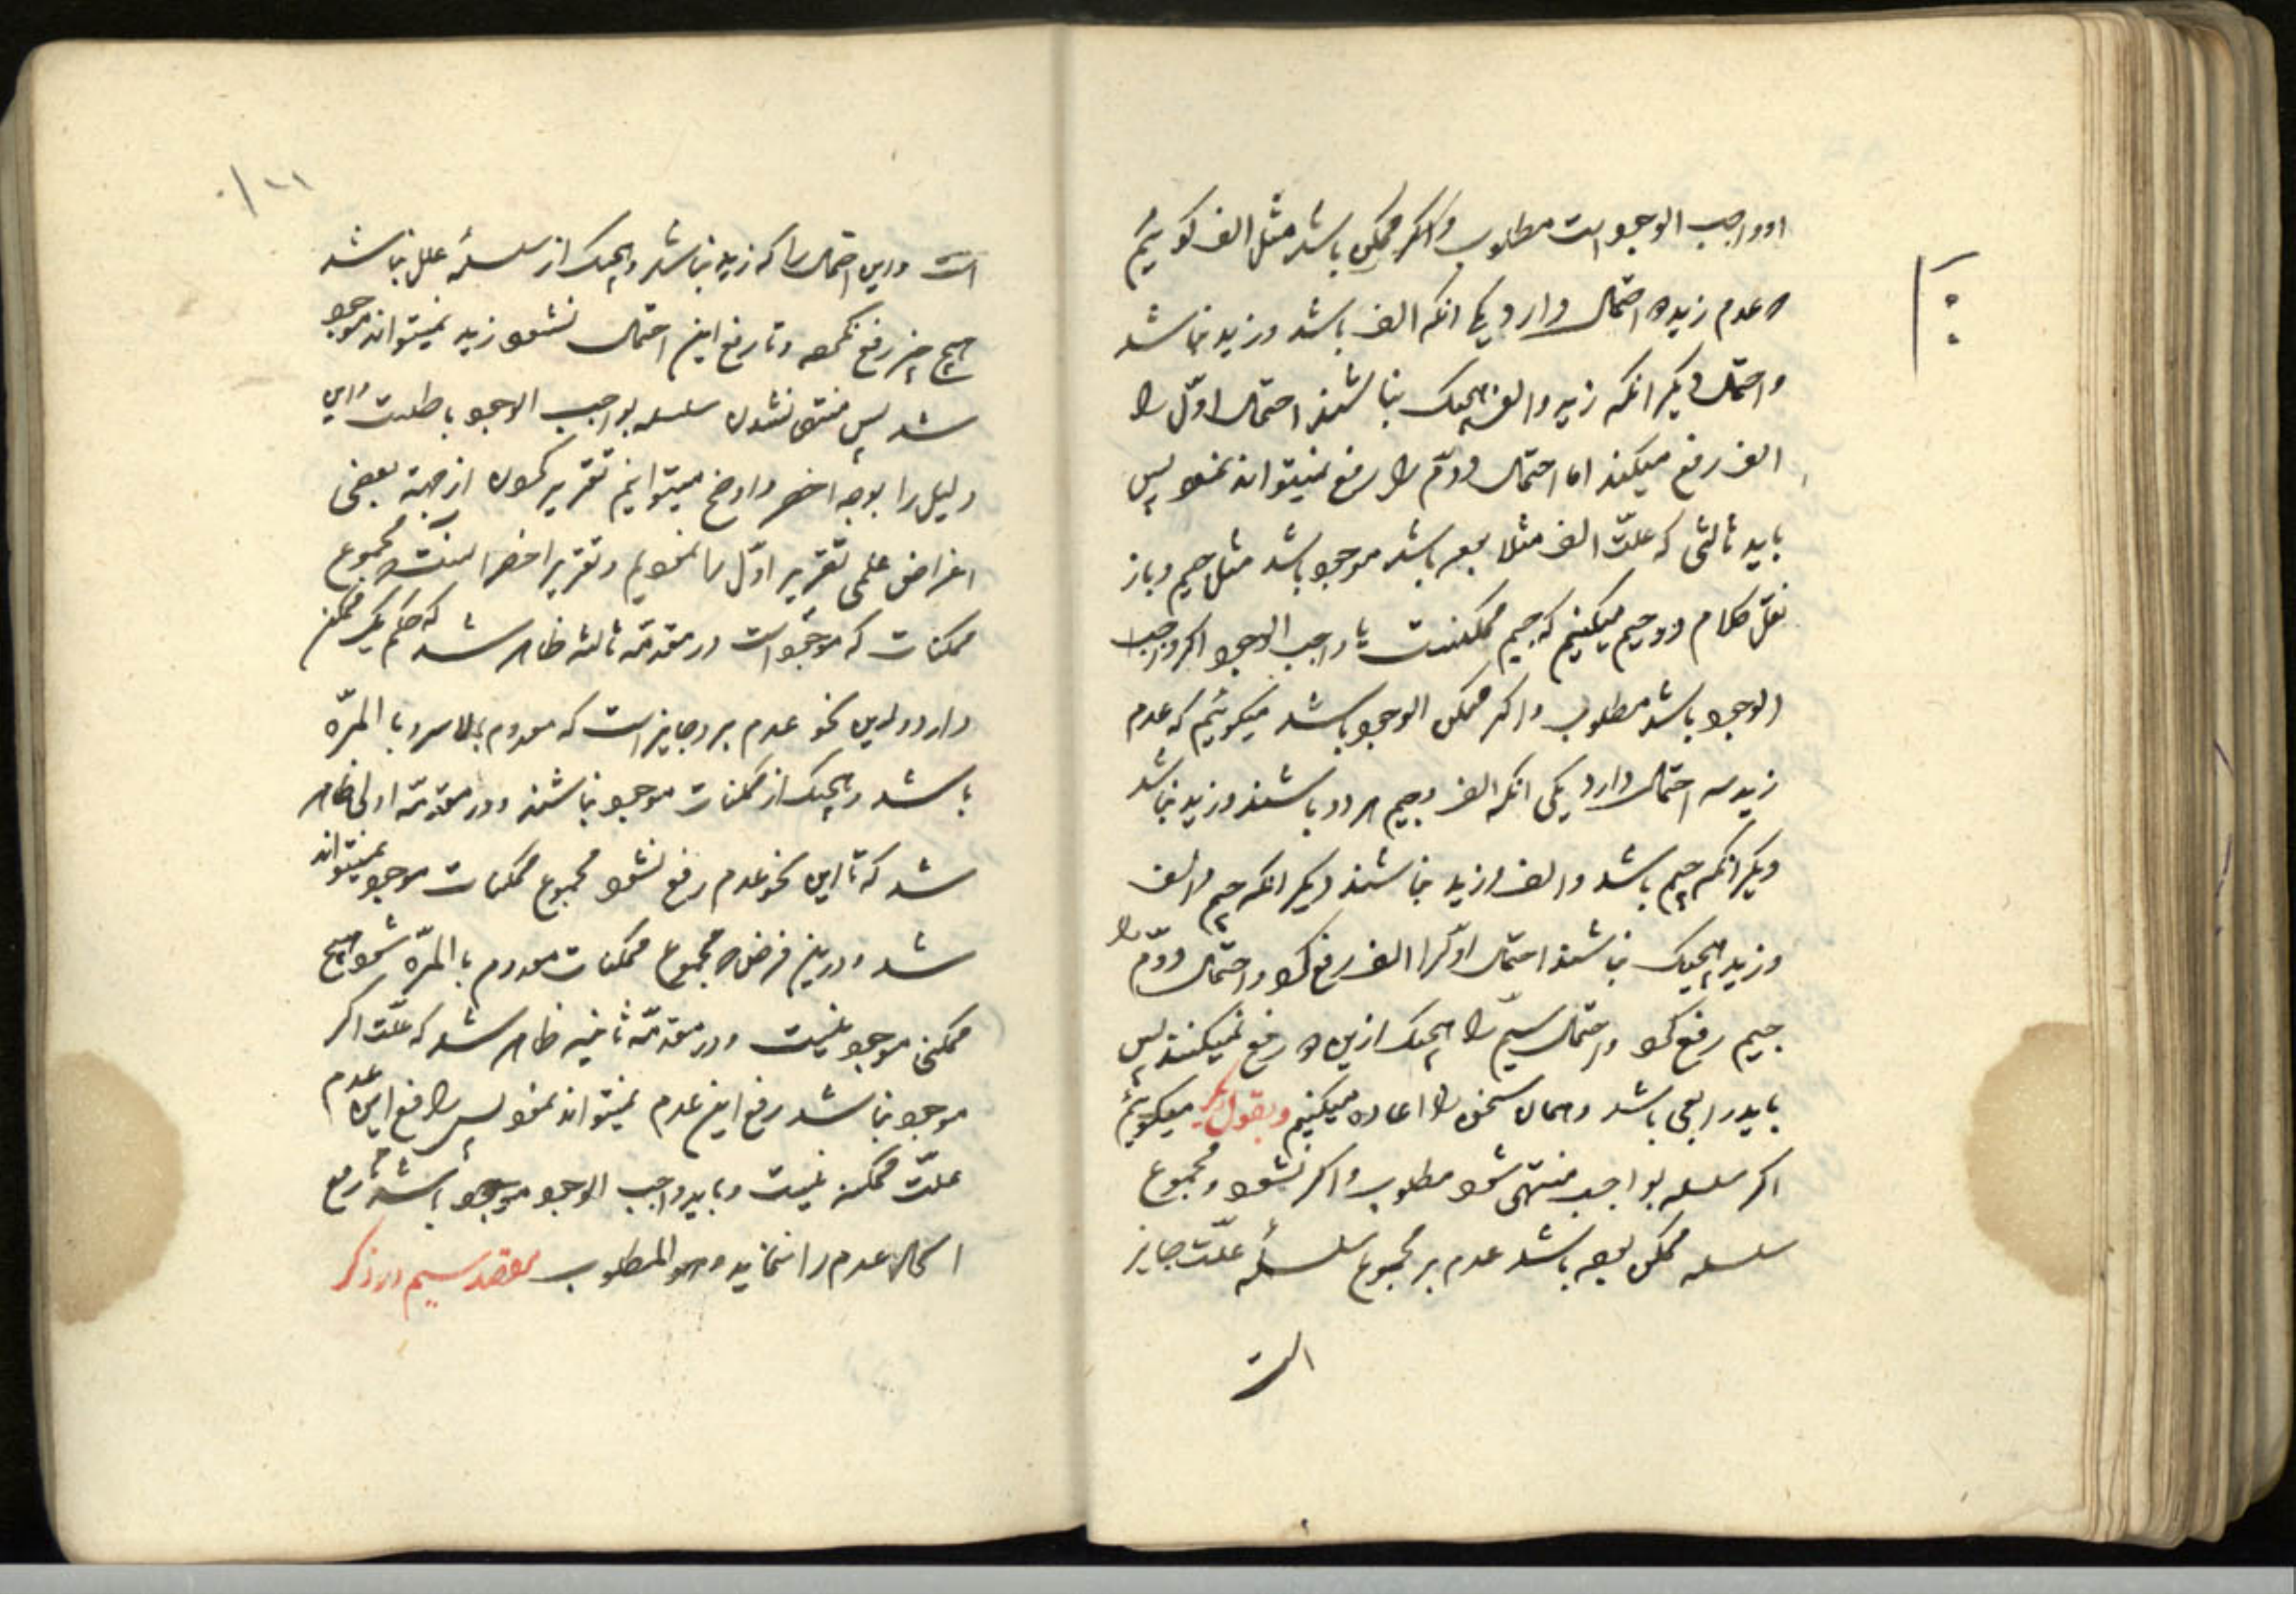 او واجب الوجود است مطلوب و اگر ممکن باشد مثل الف گوئیم
که عدم زید دو احتمال دارد یکی آنکه الف باشد و زید نباشد
و احتمال دیگر آنکه زید و الف هیچیک نباشند احتمال اوّل را
الف رفع میکند اما احتمال دوّم را رفع نمیتواند نمود پس
باید ثالثی که علّت الف مثلا بوده باشد موجود باشد مثل جیم و باز
نقل کلام در جیم میکنیم که جیم ممکنست یا واجب الوجود اگر واجب
الوجود باشد مطلوب و اگر ممکن الوجود باشد میگوئیم که عدم
زید سه احتمال دارد یکی آنکه الف و جیم هر دو باشند و زید نباشد
دیگر آنکه جیم باشد و الف و زید نباشند دیگر آنکه جیم و الف
و زید هیچیک نباشند احتمال اوّل را الف رفع کرد و احتمال دوّم را
جیم رفع کرد و احتمال سیّم را هیچیک ازین دو رفع نمیکنند پس
باید رابعی باشد و همان سخن را اعاده میکنیم و بقول دیگر میگوئیم
اگر سلسله بواجب منتهی شود مطلوب و اگر نشود و مجموع
سلسله ممکن بوده باشد عدم بر مجموع سلسلهٔ علّت جایز
است
۱۰۱
است و این احتمال را که زید نباشد و هیچیک از سلسلهٔ علل نباشد
هیچ چیز رفع نکرده و تا رفع این احتمال نشود زید نمیتواند موجود
شد پس منتهی نشدن سلسله بواجب الوجود باطلست و این
دلیل را بوجه اخصر و اوضح میتوانیم تقریر کردن از جهة بعضی
اغراض علمی تقریر اوّل را نمودیم و تقریر اخصر اینست که مجموع
ممکنات که موجود است در مقدمّه ثالثه ظاهر شد که حکم یک ممکن
دارد و این نحو عدم برو جایز است که معدوم بالاسر و با المرّه
باشد و هیچیک از ممکنات موجود نباشند و در مقدمّه اولی ظاهر
شد که تا این نحو عدم رفع نشود مجموع ممکنات موجود نمیتواند
شد و درین فرض که مجموع ممکنات معدوم با المرّه شود هیچ
ممکنی موجود نیست و در مقدمّه ثانیه ظاهر شد که علّت اگر
موجود نباشد رفع این عدم نمیتواند نمود پس رافع این عدم
علّت ممکنه نیست و باید واجب الوجود موجود باشد تا رفع
امکان عدم را نماید و هو المطلوب مقصد سیم در ذکر